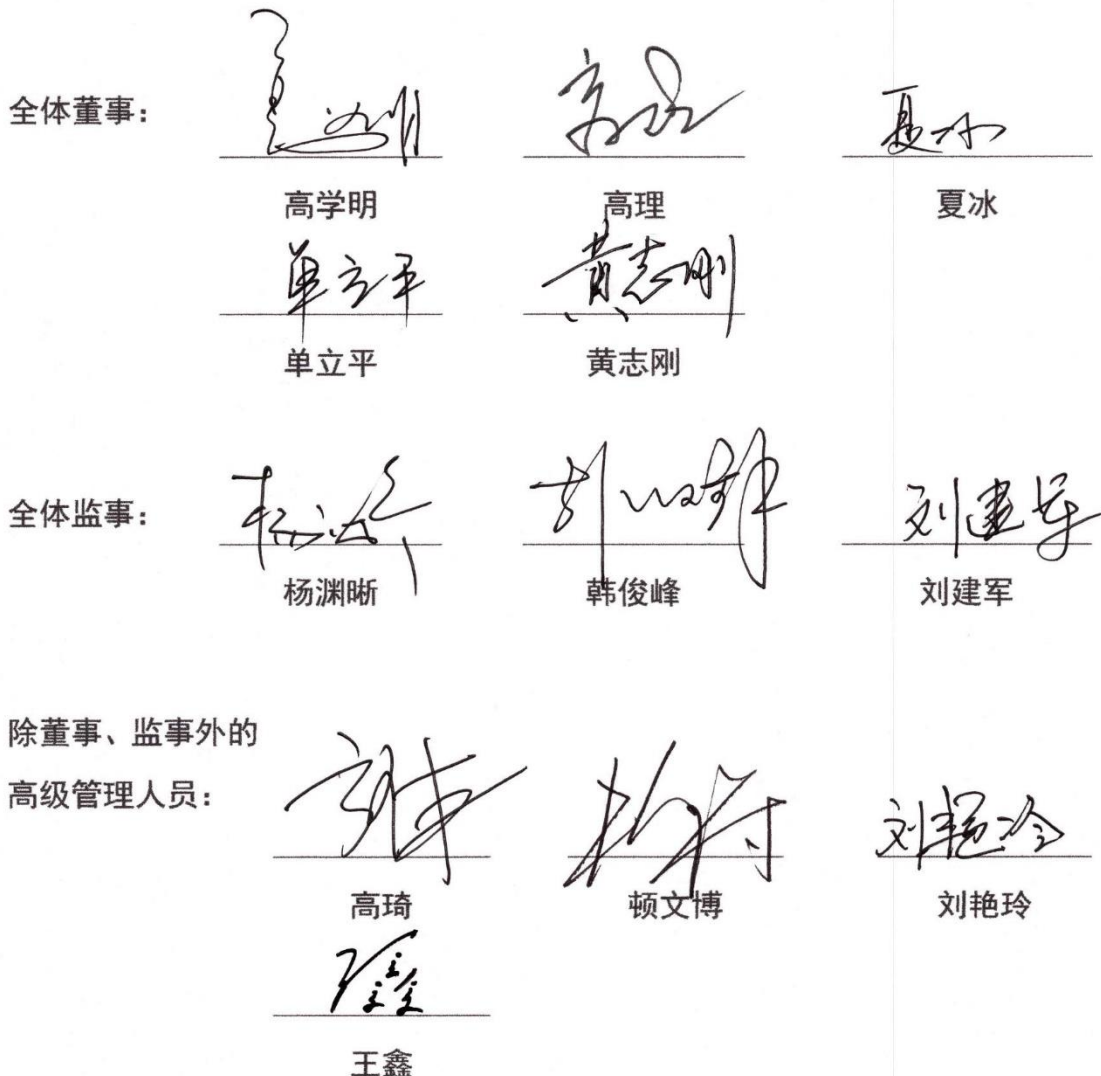 全体董事：
高学明 高理 夏冰
单立平 黄志刚
单立平 黄志刚
全体监事：
刘建军
杨渊晰 韩俊峰 刘建军
除董事、监事外的
高级管理人员：
刘艳玲
高琦 顿文博 刘艳玲
王鑫